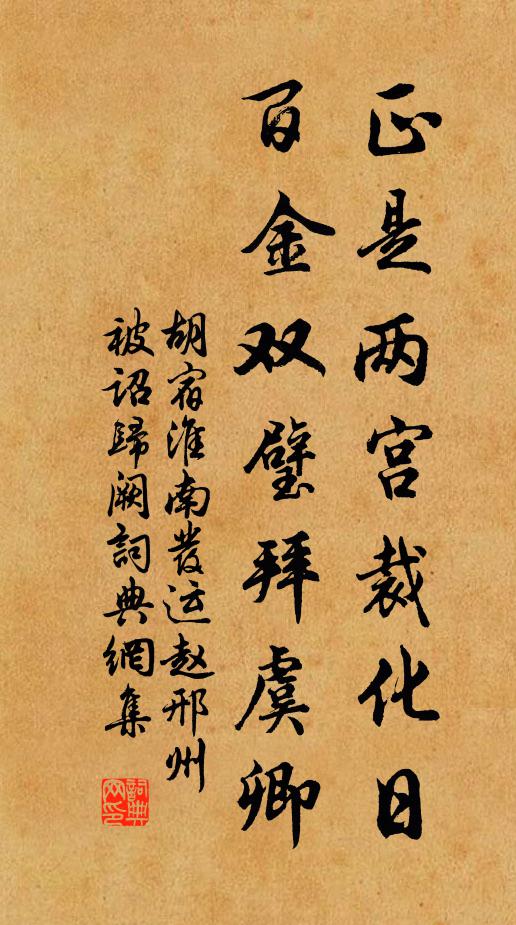 正是两宫裁化日
百金双璧拜虞卿
胡宿淮南發运赵邢州
被诏歸阙詞典網集
詞典网印